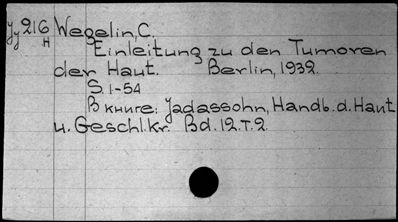 Yy 216 Wegelin, C.
H
Einleitung zu den Tumoren
der Haut. Berlin, 1932.
S. 1-54
В книге: Jadassohn, Handb. d. Haut
u. Geschl.kr. Bd. 12. T. 2.